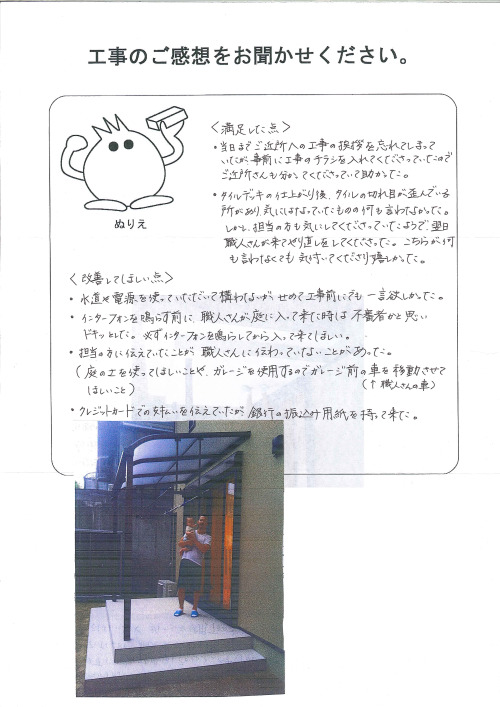 工事のご感想をお聞かせください。
ぬりえ
〈満足した点〉
・当日までご近所への工事の挨拶を忘れてしまって
いたが、事前に工事のチラシを入れてくださっていたので
ご近所さんも分かってくださっていて助かった。
・タイルデッキの仕上がり後、タイルの切れ目が歪んでいる
所があり、気にはなっていたものの何も言わなかった。
しかし、担当の方も気にしてくださっていたようで、翌日
職人さんが来てやり直しをしてくださった。こちらが何
も言わなくても気付いてくださり嬉しかった。
〈改善してほしい点〉
・水道や電源を使っていただいて構わないが、せめて工事前にでも一言欲しかった。
・インターフォンを鳴らす前に、職人さんが庭に入って来た時は不審者かと思い
ドキッとした。必ずインターフォンを鳴らしてから入って来てほしい。
・担当の方に伝えていたことが職人さんに伝わっていないことがあった。
(庭の土を使ってほしいことや、ガレージを使用するのでガレージ前の車を移動させて
ほしいこと)
(↑職人さんの車)
・クレジットカードでの支払いを伝えていたが銀行の振込み用紙を持って来た。